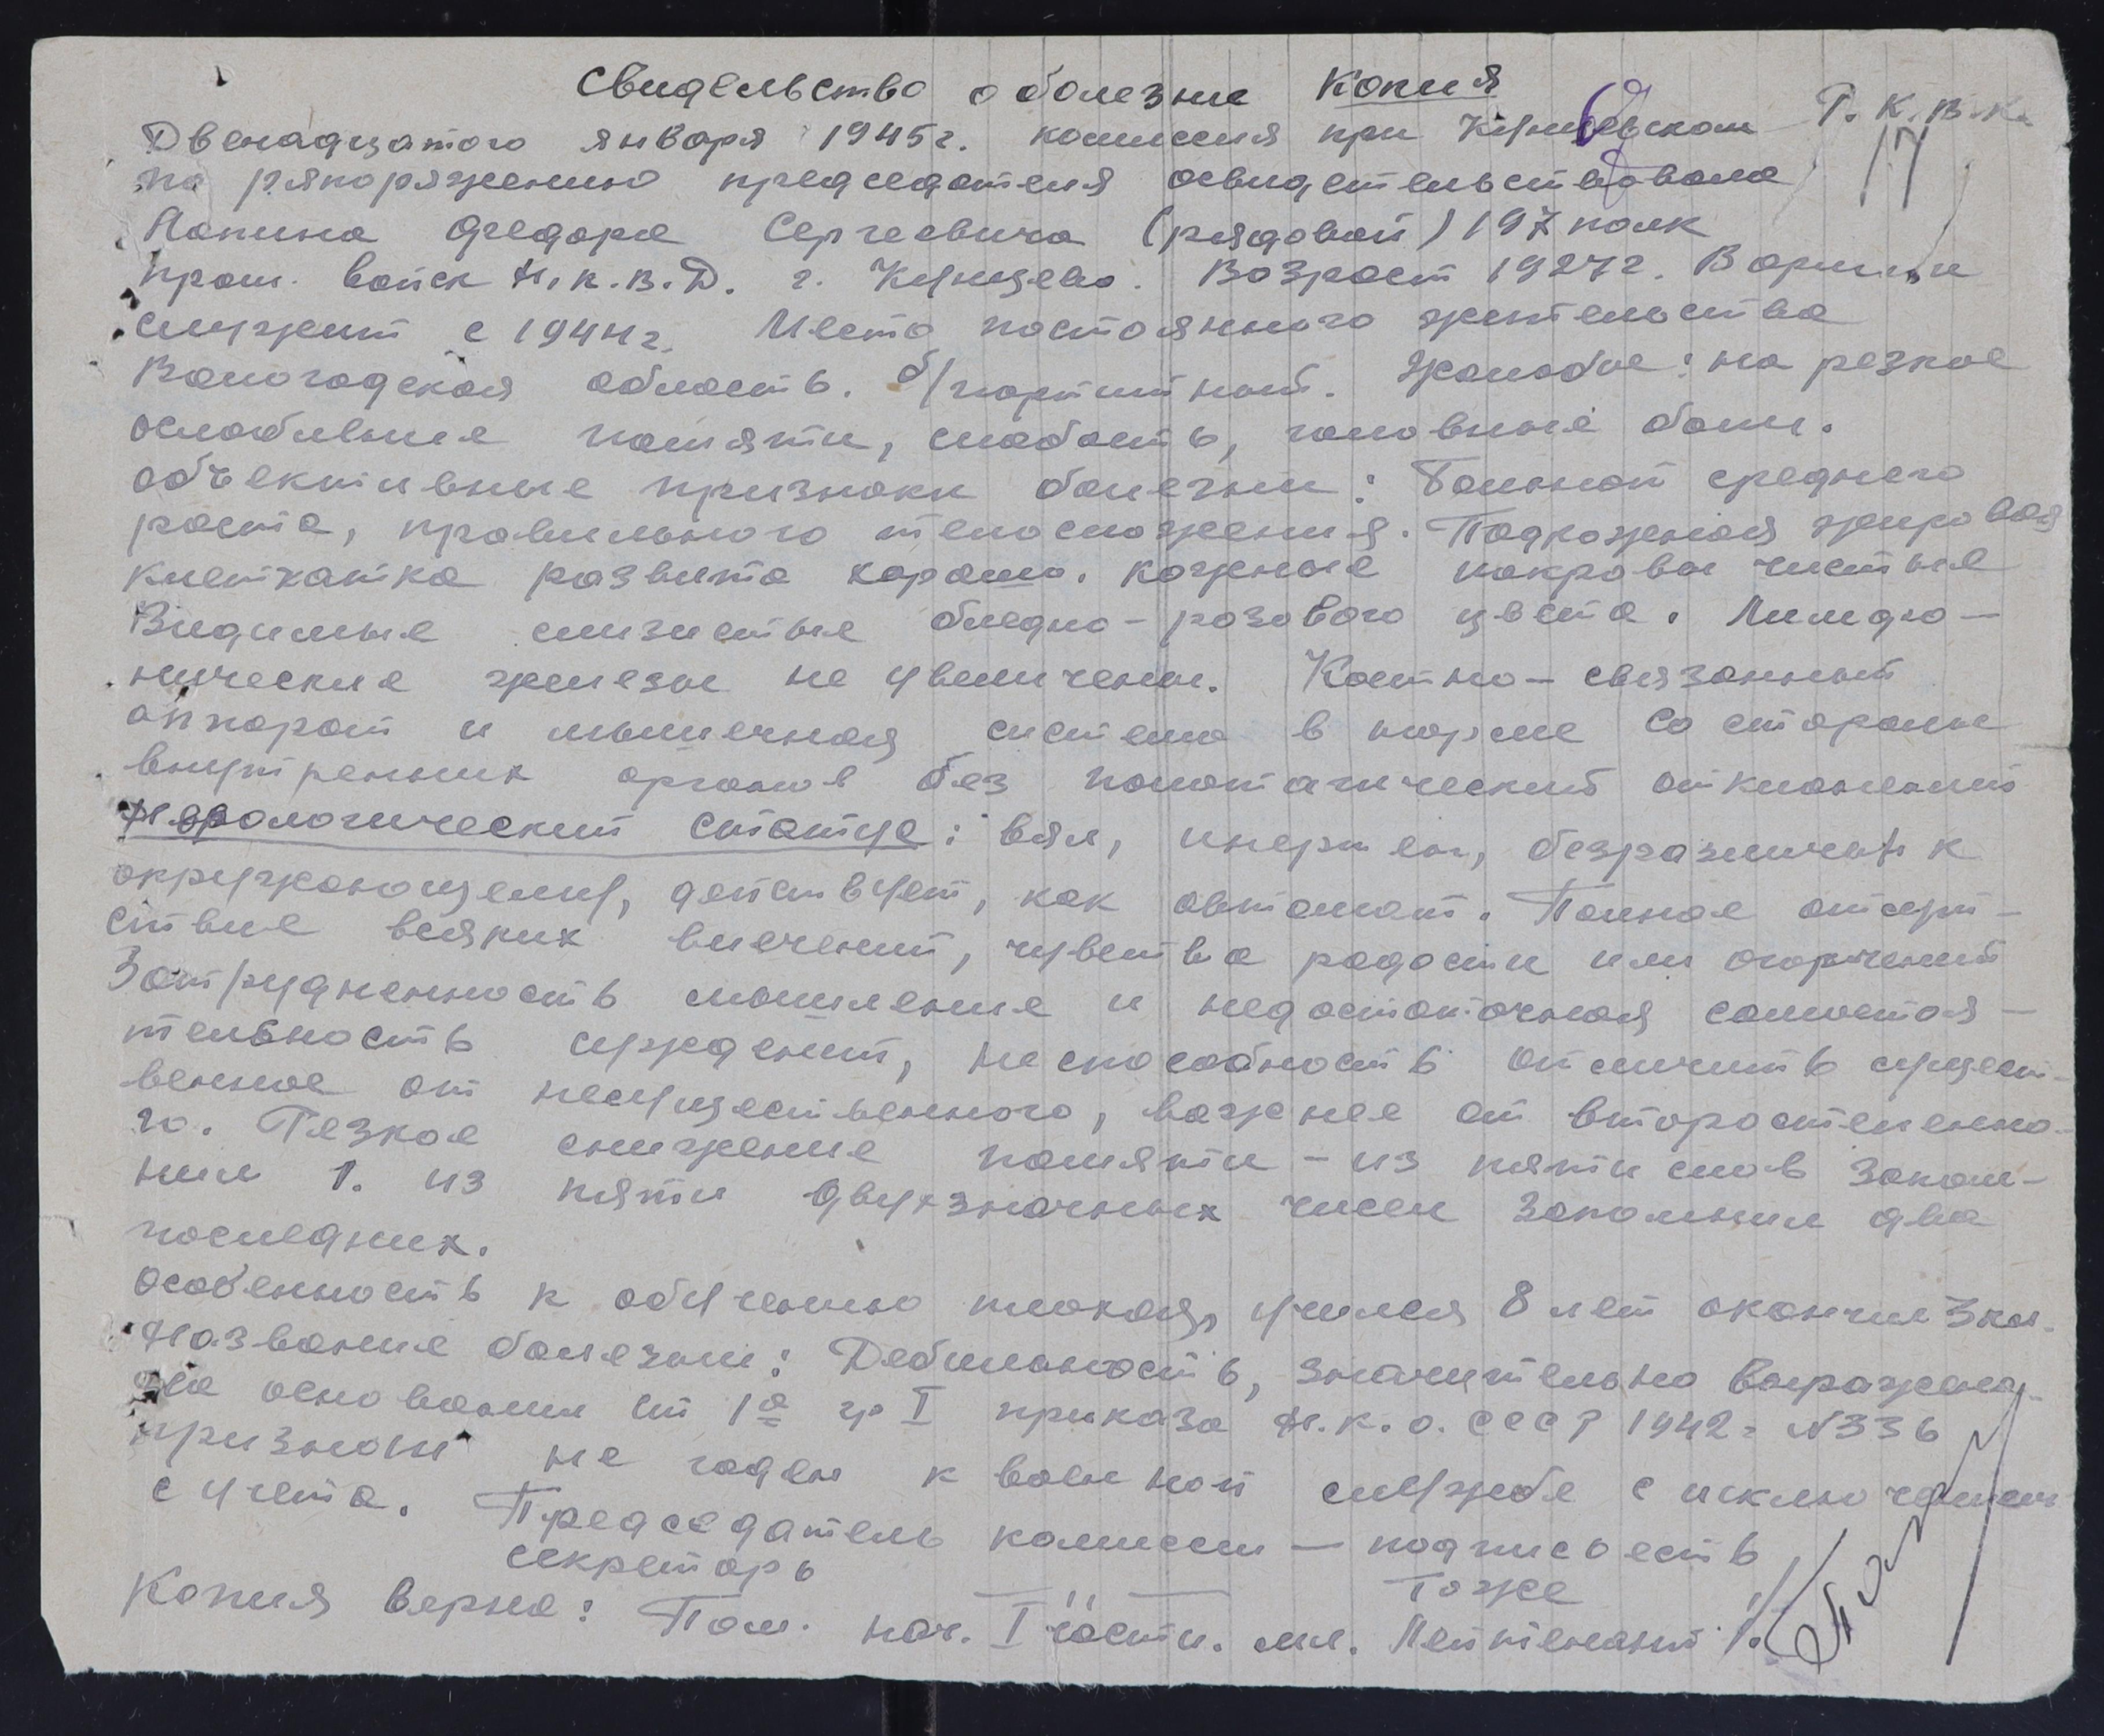 Свидельство о болезние Копия
Двенадцатого января 1945г. комиссия при Кунцевском Р.К.В.К.
по ряпоряжению председателя освидетельствовала
Федора Сергеевича (рядовой) 197 полк
пром. войск Н.К.В.Д. г. Кунцево. Возраст 1927г. В армии
служит с 1944г. Место постоянного жительства
Вологодская область. б/партийный. Жалобы: на резкое
ослабление памяти, слабость, головные боли.
Объективные признаки болезни: Больной среднего
роста, правильного телосложения. Подкожная жировая
клетчатка развита хорошо. Кожные покровы чистые
Видимые слизистые бледно-розового цвета. Лимфо-
нические железы не увеличены. Костно-связанный
аппарат и мышечная система в норме Со стороны
внутренних органов без пологический отклонений
Неврологический статус: вял, инертен, безразличен к
окружающему, действует, как автомат. Полное отсут-
ствие всяких влечений, чувства радости или огорчений
Затрудненность мышление и недостаточная самостоя-
тельность суждений, неспособность отличить сущест-
венное от несущественного, важнее от второстепенно-
го. Резкое снижение памяти - из пяти слов запом-
нил 1. из пяти двухзначных чисел запомнил два
последних.
Особенность к обучению плохая, учился 8 лет окончил 3 кл.
Название болезни: Дебильность, значительно выражена.
На основании ст 1а гр I приказа Н.К.О. СССР 1942г N336
признан не годен к военной службе с исключением
с учета. Председатель комиссии — подпись есть
секретарь — " — Тоже
Копия верна: Пом. нач. I части. мл. Лейтенант